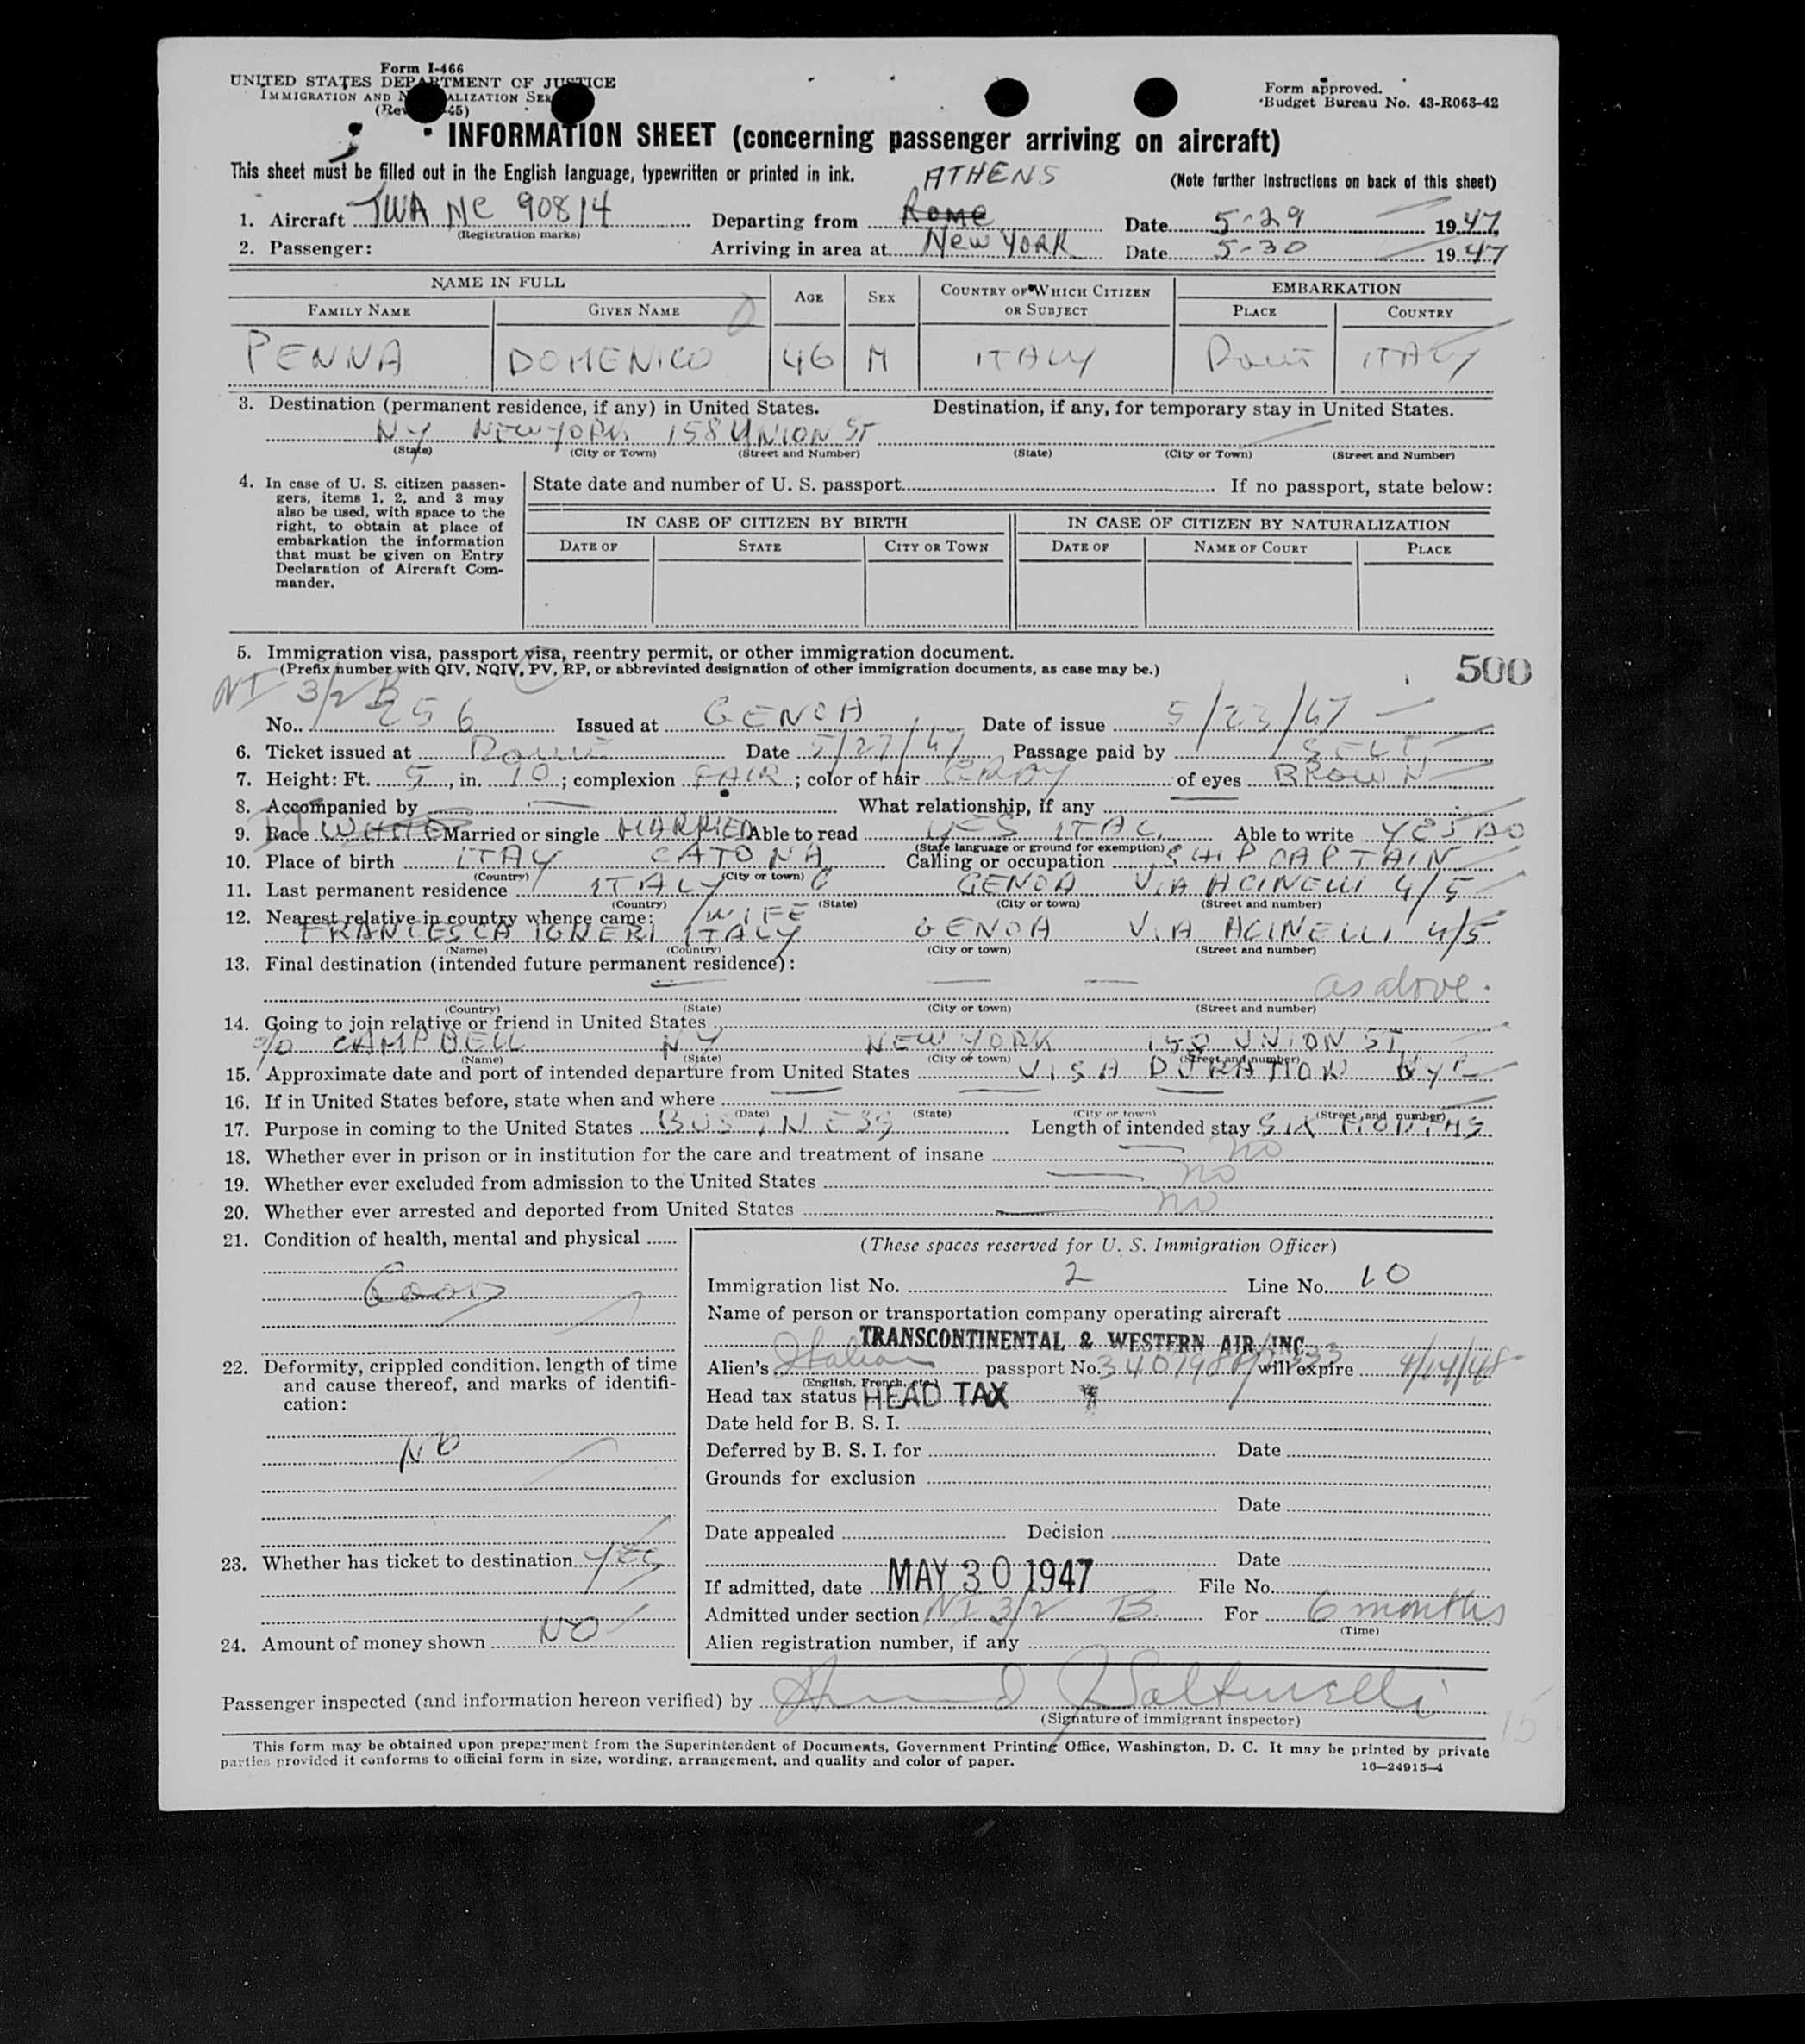 Form I-466
UNITED STATES DEPARTMENT OF JUSTICE
IMMIGRATION AND NATURALIZATION SERVICE
Form approved.
Budget Bureau No. 43-R063-42
INFORMATION SHEET (concerning passenger arriving on aircraft)
This sheet must be filled out in the English language, typewritten or printed in ink.
(Note further instructions on back of this sheet)
ATHENS
1. Aircraft TWA NC 90814 Departing from Rome Date 5-29 1947
(Registration marks)
2. Passenger: Arriving in area at New YORK Date 5-30 1947
NAME IN FULL AGE SEX COUNTRY OF WHICH CITIZEN OR SUBJECT EMBARKATION
FAMILY NAME GIVEN NAME PLACE COUNTRY
PENNA DOMENICO 46 M ITALY ITALY
3. Destination (permanent residence, if any) in United States. Destination, if any, for temporary stay in United States.
NY NEW YORK 158 UNION ST
(State) (City or Town) (Street and Number) (State) (City or Town) (Street and Number)
4. In case of U. S. citizen passengers, items 1, 2, and 3 may
also be used, with space to the
right, to obtain at place of
embarkation the information
that must be given on Entry
Declaration of Aircraft Commander.
State date and number of U. S. passport If no passport, state below:
IN CASE OF CITIZEN BY BIRTH IN CASE OF CITIZEN BY NATURALIZATION
DATE OF STATE CITY OR TOWN DATE OF NAME OF COURT PLACE
5. Immigration visa, passport visa, reentry permit, or other immigration document.
(Prefix number with QIV, NQIV, PV, RP, or abbreviated designation of other immigration documents, as case may be.)
500
NI 3/2 B
No. 256 Issued at GENOA Date of issue 5/23/47
6. Ticket issued at Date 5/27/47 Passage paid by SELF
7. Height: Ft. 5, in. 10; complexion FAIR; color of hair GRAY of eyes BROWN
8. Accompanied by What relationship, if any
9. Race WHITE Married or single MARRIED Able to read YES ITAL. Able to write YES
(State language or ground for exemption)
10. Place of birth ITALY CATONA Calling or occupation SHIP CAPTAIN
(Country) (City or town)
11. Last permanent residence ITALY GENOA VIA ACINELLI 4/5
(Country) (State) (City or town) (Street and number)
12. Nearest relative in country whence came: WIFE
FRANCESCA IGNERI ITALY GENOA VIA ACINELLI 4/5
(Name) (Country) (City or town) (Street and number)
13. Final destination (intended future permanent residence):
as above.
(Country) (State) (City or town) (Street and number)
14. Going to join relative or friend in United States
c/o CAMPBELL NY NEW YORK UNION ST
(Name) (State) (City or town) (Street and number)
15. Approximate date and port of intended departure from United States VISA DURATION NYC
16. If in United States before, state when and where
(Date) (State) (City or town) (Street and number)
17. Purpose in coming to the United States BUSINESS Length of intended stay SIX MONTHS
18. Whether ever in prison or in institution for the care and treatment of insane no
19. Whether ever excluded from admission to the United States no
20. Whether ever arrested and deported from United States no
21. Condition of health, mental and physical
Good
22. Deformity, crippled condition, length of time
and cause thereof, and marks of identification:
NO
23. Whether has ticket to destination YES
24. Amount of money shown NO
(These spaces reserved for U. S. Immigration Officer)
Immigration list No. 2 Line No. 10
Name of person or transportation company operating aircraft
TRANSCONTINENTAL & WESTERN AIR, INC.
Alien's Italian passport No. will expire 4/14/48
(English, French, etc.)
Head tax status HEAD TAX
Date held for B. S. I.
Deferred by B. S. I. for Date
Grounds for exclusion
Date
Date appealed Decision
Date
If admitted, date MAY 30 1947 File No.
Admitted under section NI 3/2 B For 6 months
(Time)
Alien registration number, if any
Passenger inspected (and information hereon verified) by
(Signature of immigrant inspector)
This form may be obtained upon prepayment from the Superintendent of Documents, Government Printing Office, Washington, D. C. It may be printed by private
parties provided it conforms to official form in size, wording, arrangement, and quality and color of paper.
16—24915-4